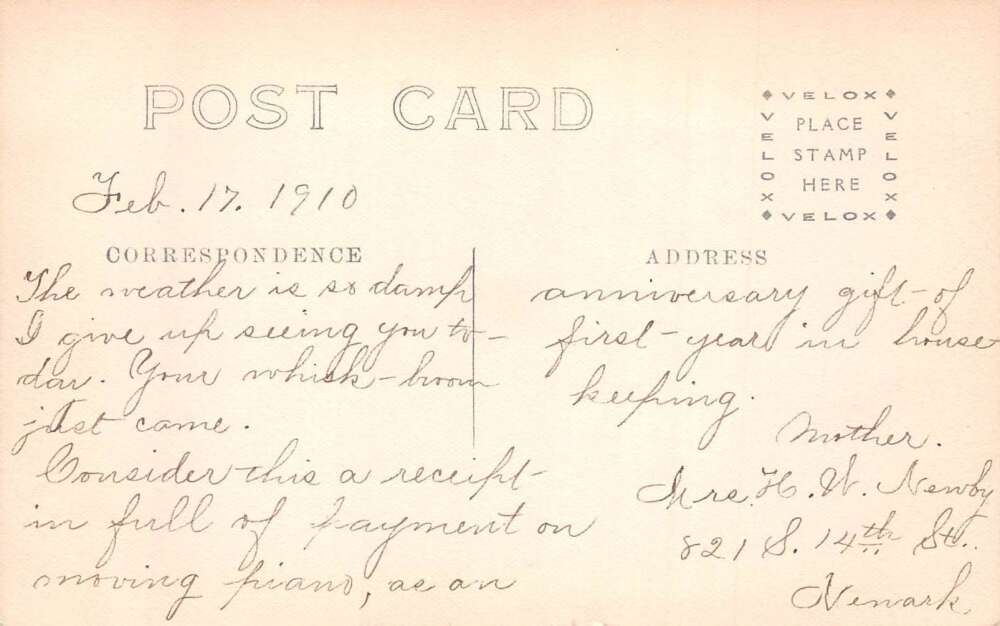 POST CARD
VELOX
VELOX PLACE STAMP HERE VELOX
VELOX
Feb. 17. 1910
CORRESPONDENCE
The weather is so damp
I give up seeing you to-
day. Your whisk-broom
just came.
Consider this a receipt
in full of payment on
moving piano, as an
ADDRESS
anniversary gift of
first year in house
keeping.
Mother.
Mrs. H. W. Newby
821 S. 14th St.
Newark.